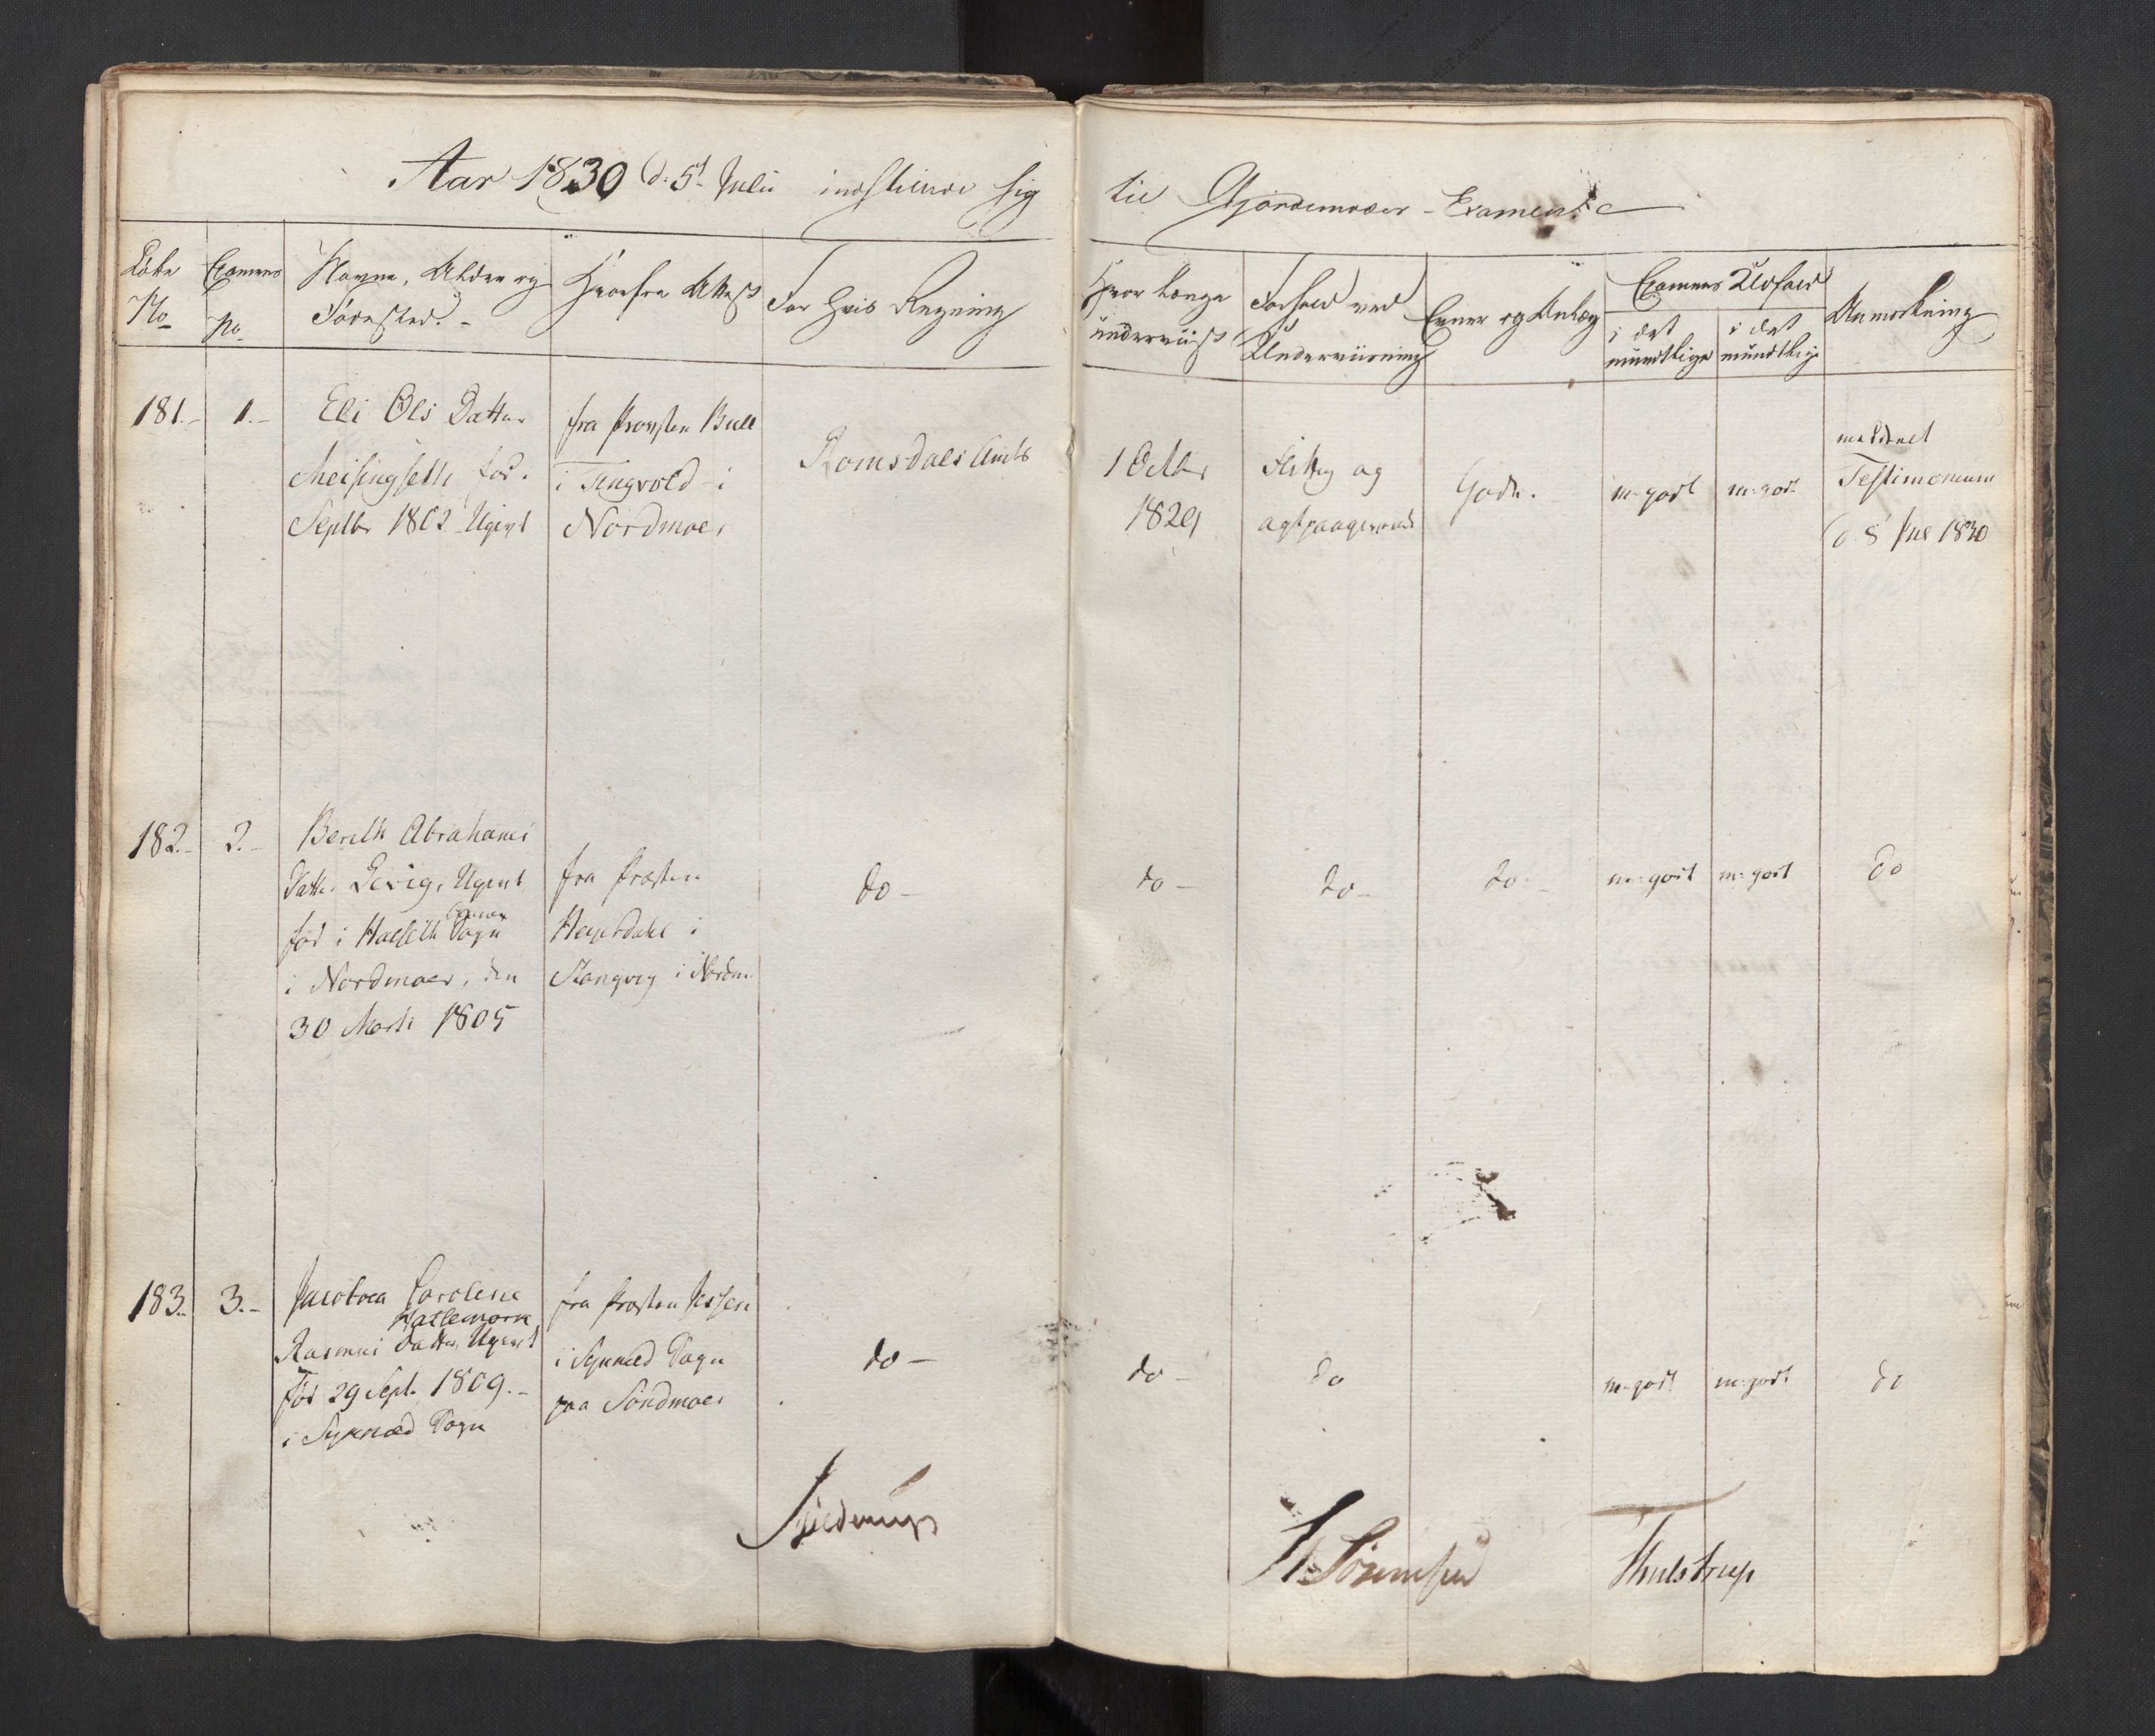 Aar 1830 d. 5t Julii indstillede sig til Gjordemoder-Examen
Løbe No
Examens No
Navne, Alder og Fødested.
Hvorfra Attest
For hvis Regning
Hvor længe underviist
Forhold ved Underviisning
Evner og Anlæg
Examens Udfald
i det mundtlige
i det mundtlige
Anmærkning
181.- 1.-
Eli Ols Datter
Meisingseth fød.
Septbr 1802 Ugivt
fra Provsten Bull
i Tingvold i
Nordmoer
Romsdals Amts
1 Octbr
1829
flittig og
agtpaagivende
Gode.
m-godt
m:godt
meddeelt
Testimonium
d. 8 Jul 1830
182.- 2.-
Berith Abrahams
Datter Ugivt
fød i Halseth Sogn
i Nordmoer, den
30 Marti 1805
fra Præsten
i
Stangvig i Nordm.
do -
do -
do -
do -
m: godt
m: godt
do
183.- 3.-
Jacobea Caroline
Hallemork
Rasmus Datter Ugivt
Fød 29 Sept. 1809.-
i Sogn
fra Præsten Jessen
i Sogn
paa Søndmoer
do -
do -
do
m-godt
m:godt
do
Sørenssen
Thulstrup